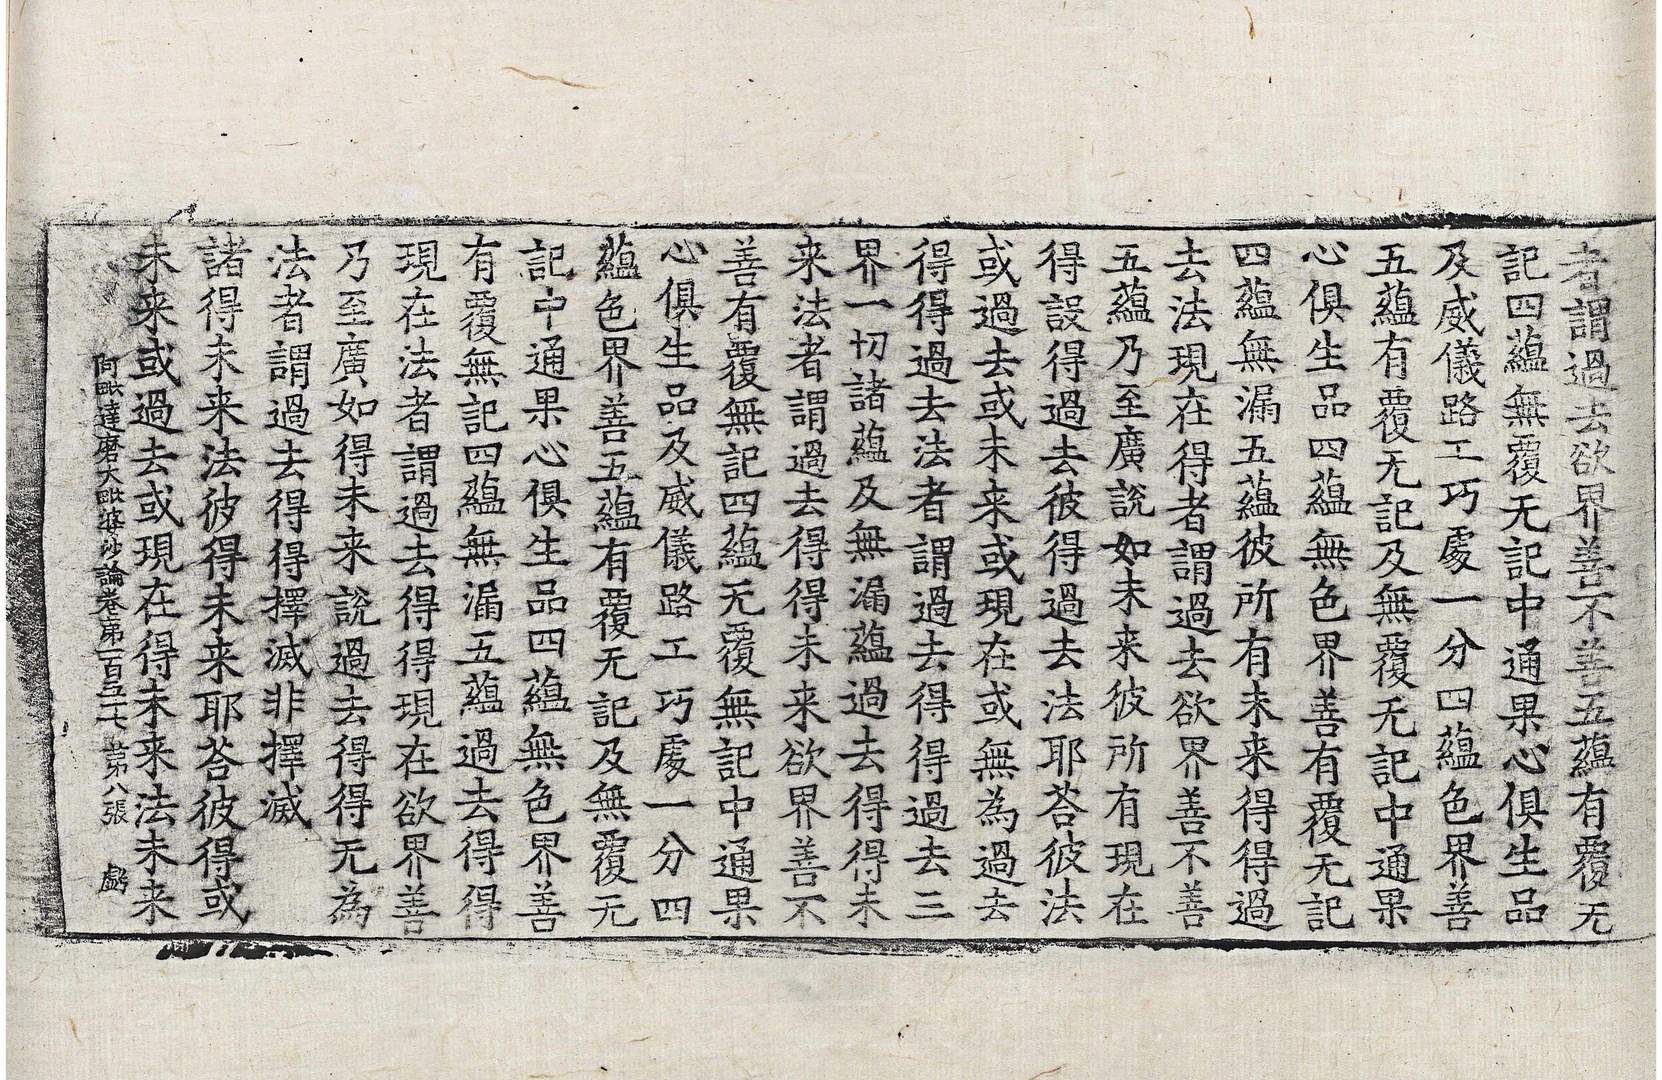 者謂過去欲界善不善五蘊有覆无
記四蘊無覆无記中通果心俱生品
及威儀路工巧處一分四蘊色界善
五蘊有覆无記及無覆无記中通果
心俱生品四蘊無色界善有覆无記
四蘊無漏五蘊彼所有未来得得過
去法現在得者謂過去欲界善不善
五蘊乃至廣說如未来彼所有現在
得設得過去彼得過去法耶荅彼法
或過去或未来或現在或無為過去
得得過去法者謂過去得得過去三
界一切諸蘊及無漏蘊過去得得未
来法者謂過去得得未来欲界善不
善有覆無記四蘊无覆無記中通果
心俱生品及威儀路工巧處一分四
蘊色界善五蘊有覆无記及無覆无
記中通果心俱生品四蘊無色界善
有覆無記四蘊無漏五蘊過去得得
現在法者謂過去得得現在欲界善
乃至廣如得未来說過去得得无為
法者謂過去得得擇滅非擇滅
諸得未来法彼得未来耶荅彼得或
未来或過去或現在得未来法未来
阿毗達磨大毗婆沙論卷第一百五十七 第八張 虧